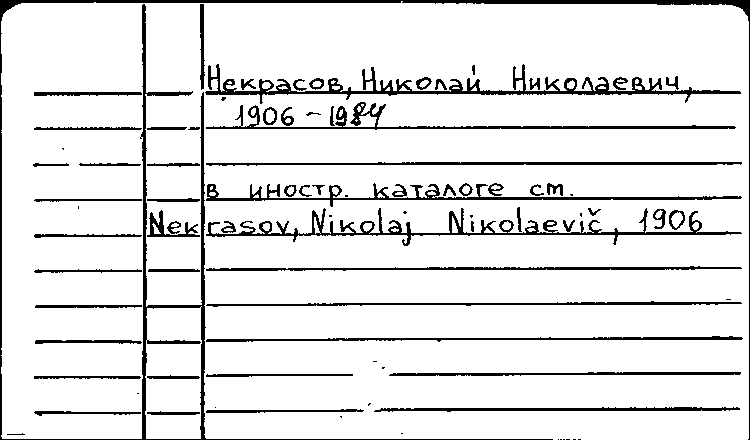 Некрасов, Николай Николаевич,
1906 - 1984
в иностр. каталоге см.
Nekrasov, Nikolaj Nikolaevič, 1906